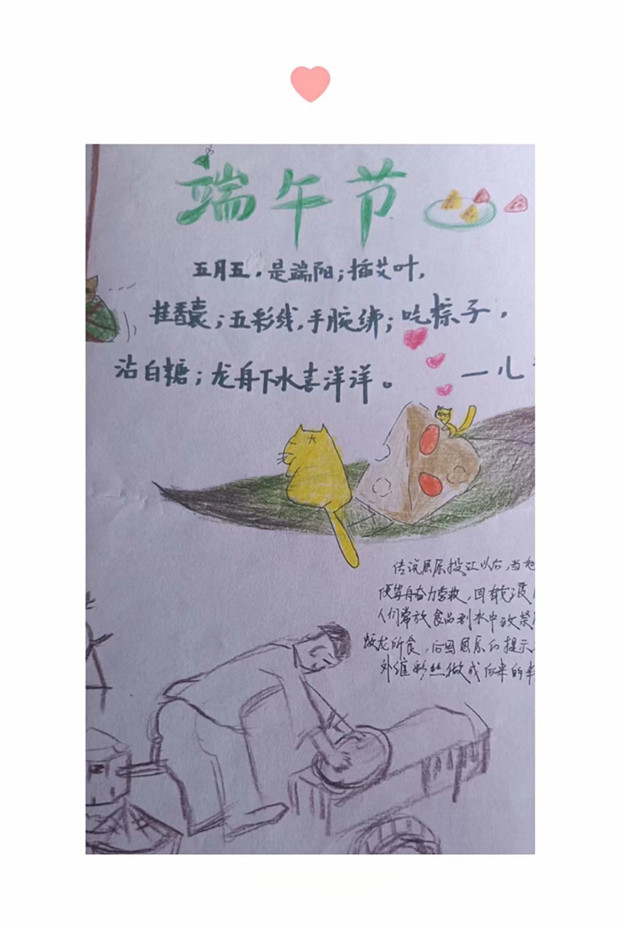 端午节
五月五,是端阳;插艾叶,
挂香囊;五彩线,手腕绑;吃粽子,
沾白糖;龙舟下水喜洋洋。 一儿
传说屈原投江以后,当地
人们常放食品到水中致祭屈
蛟龙所食,后因屈原的提示,
外缠彩丝做成后来的